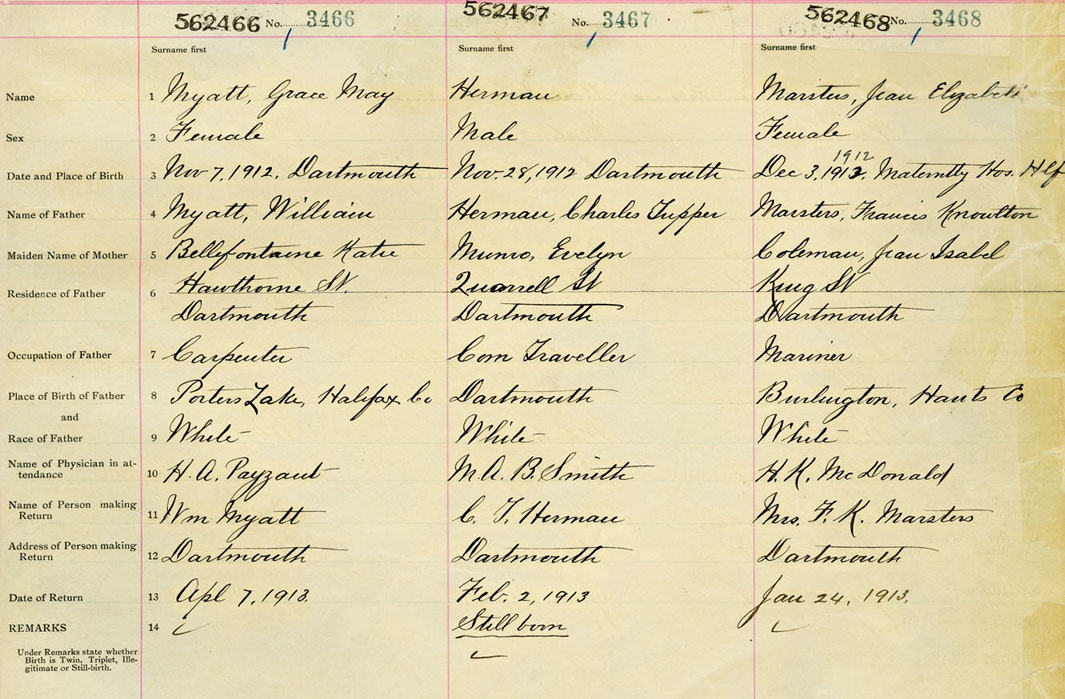 562466 No. 3466 562467 No. 3467 562468 No. 3468
Surname first Surname first Surname first
Name 1 Myatt, Grace May Herman Marsters, Jean Elizabeth
Sex 2 Female Male Female
1912
Date and Place of Birth 3 Nov 7, 1912, Dartmouth Nov. 28, 1912 Dartmouth Dec 3, 1912, Maternity Hos. Hlfx
Name of Father 4 Myatt, William Herman, Charles Tupper Marsters, Francis Knoulton
Maiden Name of Mother 5 Bellefontaine Katie Munro, Evelyn Coleman, Jean Isabel
Residence of Father 6 Hawthorne St. Quarrell St King St
Dartmouth Dartmouth Dartmouth
Occupation of Father 7 Carpenter Com Traveller Mariner
Place of Birth of Father 8 Porters Lake, Halifax Co Dartmouth Burlington, Hants Co
and
Race of Father 9 White White White
Name of Physician in at-
tendance 10 H. A. Payzant M. A. B. Smith H. K. McDonald
Name of Person making
Return 11 Wm Myatt C. T. Herman Mrs. F. K. Marsters
Address of Person making
Return 12 Dartmouth Dartmouth Dartmouth
Date of Return 13 Apl 7, 1913. Feb. 2, 1913 Jan 24, 1913.
REMARKS 14 Still born
Under Remarks state whether
Birth is Twin, Triplet, Ille-
gitimate or Still-birth.